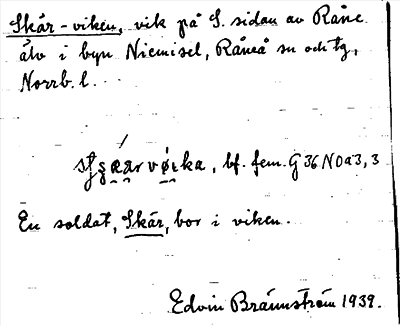 Skär-viken, vik på S. sidan av Råne
älv i byn Niemisel, Råneå sn och tg,
Norrb. l.
bf. fem. G 36 N 0 a 3, 3
En soldat, Skär, bor i viken.
Edvin Brännström 1939.